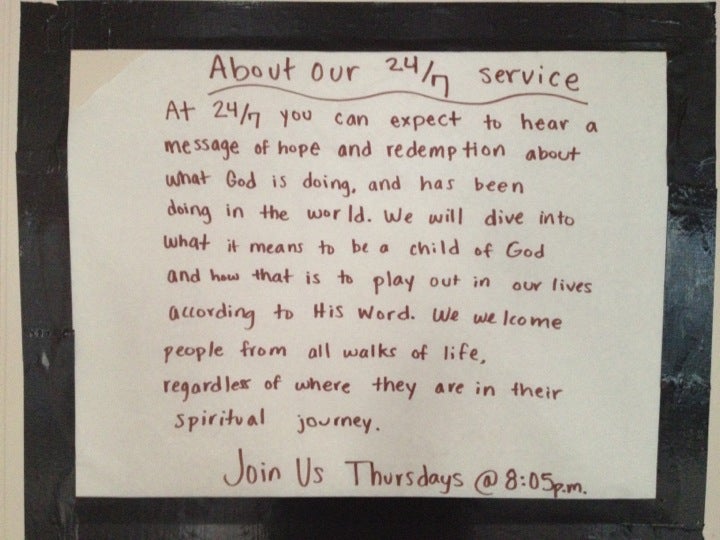 About our 24/7 service
At 24/7 you can expect to hear a
message of hope and redemption about
what God is doing, and has been
doing in the world. We will dive into
what it means to be a child of God
and how that is to play out in our lives
according to His Word. We welcome
people from all walks of life,
regardless of where they are in their
spiritual journey.
Join Us Thursdays @ 8:05p.m.